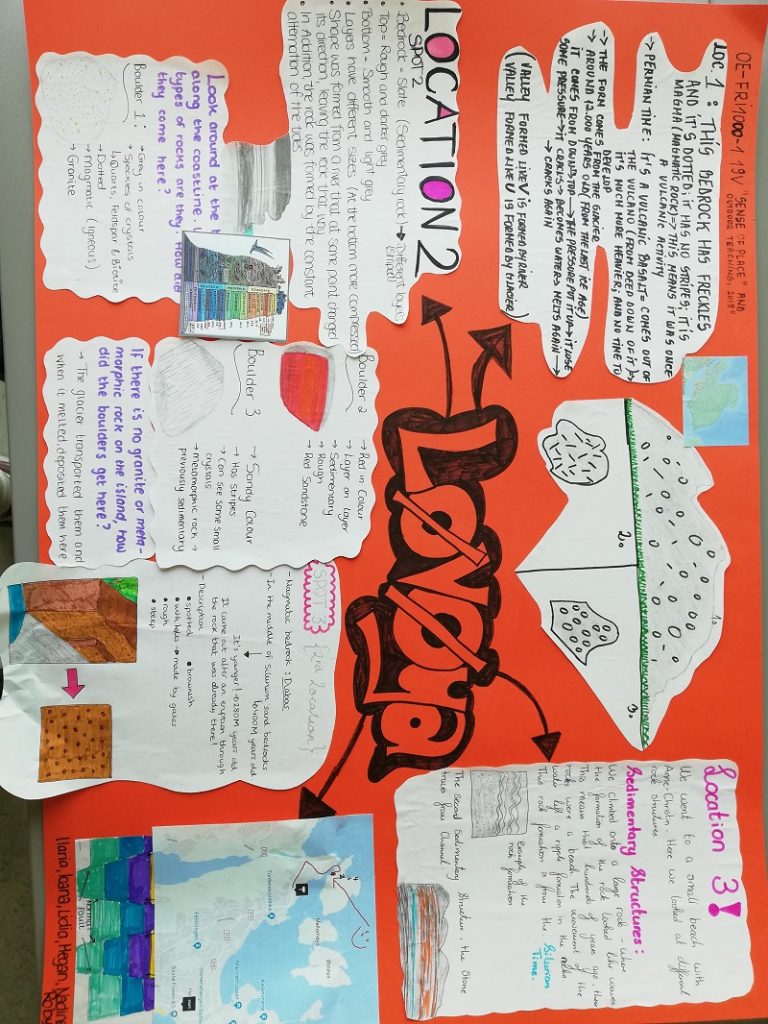 OE-FRI1000-1 19V "SENSE OF PLACE" AND
OUTDOOR TEACHING, 2019"
LOC. 1: THIS BEDROCK HAS FRECKLES
AND IT'S DOTTED; IT HAS NO STRIPES; IT IS
MAGMA (MAGMATIC ROCK) => THIS MEANS IT WAS ONCE
A VULCANIC ACTIVITY
-> PERMIAN TIME: IT'S A VULCANIC BASALT = COMES OUT OF
THE VULCANO (FROM DEEP DOWN OF IT) =>
IT'S MUCH MORE HEAVIER; AND NO TIME TO
DEVELOP
-> THE FORM COMES FROM THE GLACIER
-> AROUND 12.000 YEARS OLD (FROM THE LAST ICE AGE)
IT COMES FROM DOWN -> TOP -> THE PRESSURE PUT IT UP -> IT LOSE
SOME PRESSURE -> IT CRACKS -> BECOMES WATER & MELTS AGAIN ->
-> CRACKS AGAIN
(VALLEY FORMED LIKE V: IS FORMED BY RIVER
VALLEY FORMED LIKE U IS FORMED BY GLACIER)
1.
2.
3.
LOCATION 2
SPOT 2
• Bedrock - Slate (Sedimentary rock) -> Different layers
(striped)
• Top = Rough and darker grey
• Bottom - Smooth and light grey
• Layers have different sizes (At the bottom more compressed)
• Shape was formed from a river that at some point changed
its direction, leaving the rock that way
• In Addition, the rock was formed by the constant
alternation of the tides
Look around at the b
along the coastline.
types of rocks are they? How did
they come here?
Boulder 1:
-> Grey in colour
-> Speckles of crystals
↳ Quartz, Feldspar & Biotite
-> Dotted
-> magmatic (igneous)
-> Granite
Boulder 2
-> Red in Colour
-> Layer on layer
-> Sedimentary
-> Rough
-> Red Sandstone
Boulder 3
-> Sandy Colour
-> Has stripes
-> Can see some small
crystals
-> metamorphic rock ->
previously sedimentary
If there is no granite or meta-
morphic rock on the island, how
did the boulders get here?
-> The glacier transported them and
when it melted, deposited them here
LOVØYA
SPOT 3 {2nd Location}
- Magmatic bedrock: Diabas
- In the middle of Silurium sand bedrocks
↳ 400M years old
It's younger! -> 280M years old
It came out after an eruption through
the rock that was already there!
- Description
• spotted • brownish
• with holes -> made by gases
• rough
• steep
Location 3!
We went to a small beach with
Anne-Christin. Here we looked at different
rock structures
Sedimentary Structures:
We climbed onto a large rock - when
the formation of the rock looked like waves
This means that hundreds of years ago, the
rocks were a beach. The movement of the
water left a ripple formation in the rocks
This rock formation is from the Silurian
Time.
example of the
rock formation
The Second Sedimentary Structure, the Stone
Normal
fault
Ilaria, Ioana, Lidia, Megan, Nadine